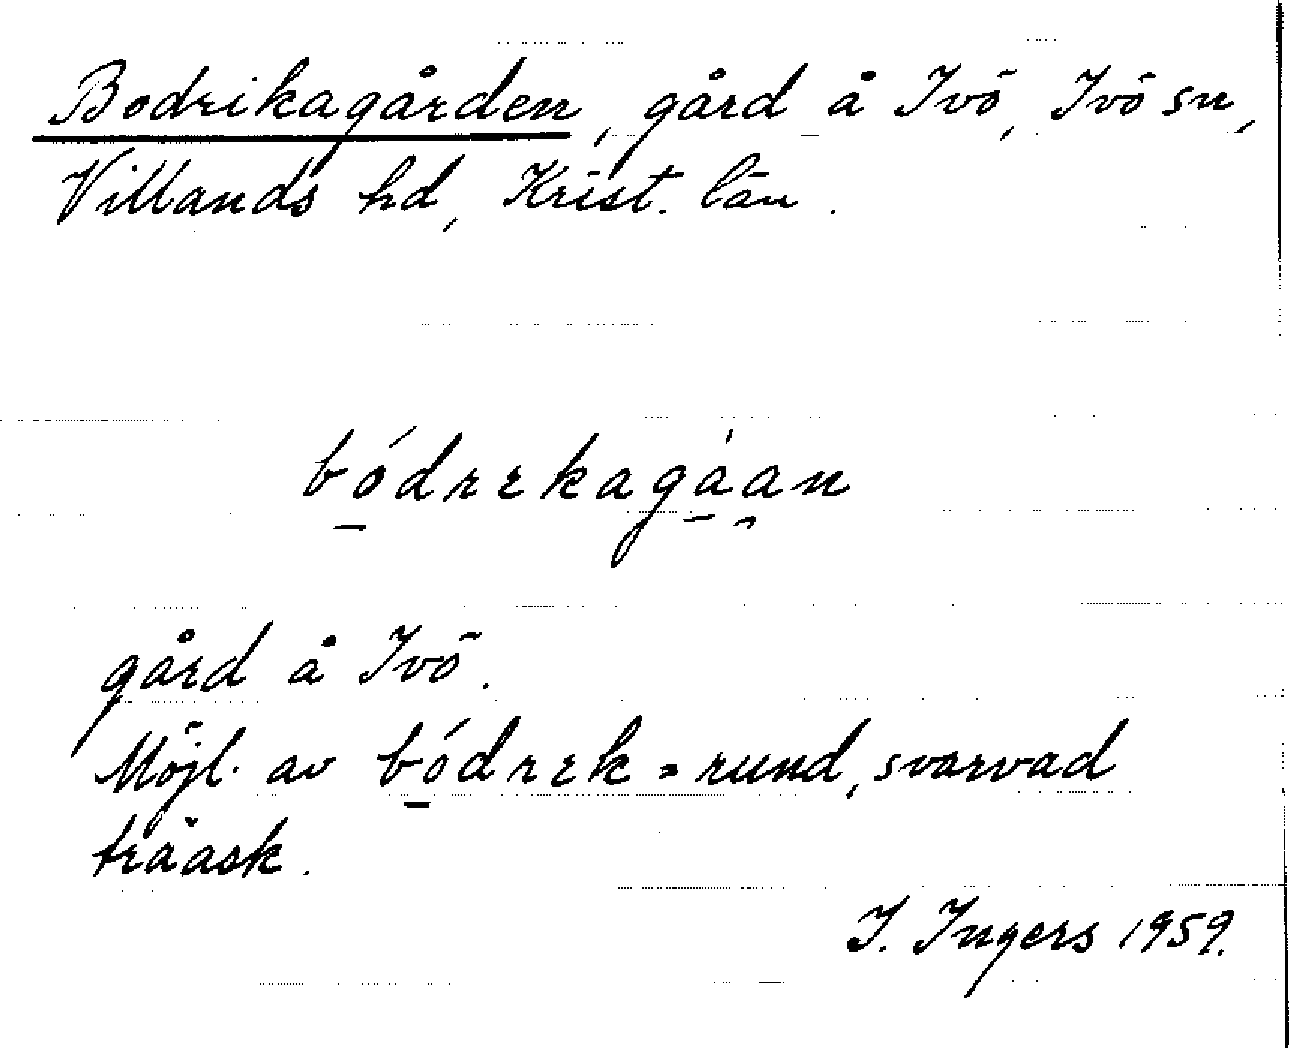 Bodrikagården, gård å Ivö, Ivö sn,
Villands hd, Krist. län.
bó̠drɛkagá̠a̯n
gård å Ivö.
Möjl. av bó̠drɛk = rund, svarvad
träask.
I. Ingers 1959.